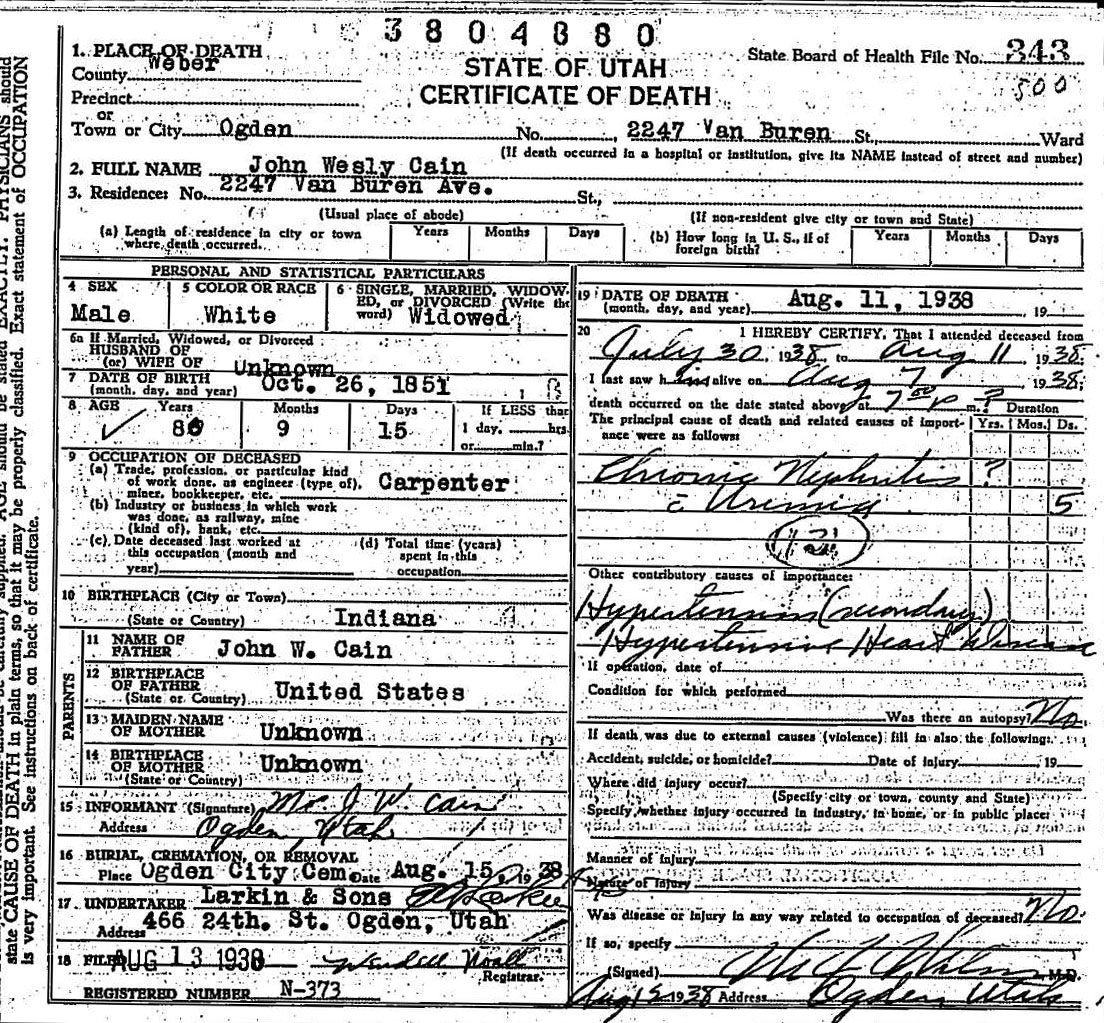 3804080
1. PLACE OF DEATH
State Board of Health File No. 343
County Weber
STATE OF UTAH
500
Precinct
CERTIFICATE OF DEATH
or
Town or City Ogden No. 2247 Van Buren St. Ward
(If death occurred in a hospital or institution, give its NAME instead of street and number)
2. FULL NAME John Wesly Cain
3. Residence: No. 2247 Van Buren Ave. St.,
(Usual place of abode) (If non-resident give city or town and State)
(a) Length of residence in city or town where death occurred. Years Months Days
(b) How long in U. S., if of foreign birth? Years Months Days
PERSONAL AND STATISTICAL PARTICULARS
4 SEX
Male
5 COLOR OR RACE
White
6 SINGLE, MARRIED, WIDOW-
ED, or DIVORCED (Write the
word) Widowed
6a If Married, Widowed, or Divorced
HUSBAND OF
(or) WIFE OF Unknown
7 DATE OF BIRTH
(month, day, and year) Oct. 26, 1851
8 AGE Years Months Days If LESS than
9 15 1 day, hrs.
or min.?
9 OCCUPATION OF DECEASED
(a) Trade, profession, or particular kind
of work done, as engineer (type of),
miner, bookkeeper, etc. Carpenter
(b) Industry or business in which work
was done, as railway, mine
(kind of), bank, etc.
(c) Date deceased last worked at
this occupation (month and
year)
(d) Total time (years)
spent in this
occupation
10 BIRTHPLACE (City or Town)
(State or Country) Indiana
PARENTS
11 NAME OF
FATHER John W. Cain
12 BIRTHPLACE
OF FATHER
(State or Country) United States
13 MAIDEN NAME
OF MOTHER Unknown
14 BIRTHPLACE
OF MOTHER Unknown
(State or Country)
15 INFORMANT (Signature) Mr. J. W. Cain
Address Ogden, Utah
16 BURIAL, CREMATION, OR REMOVAL
Place Ogden City Cem. Date Aug. 15, 1938
17 UNDERTAKER Larkin & Sons
Address 466 24th. St. Ogden, Utah
18 FILED AUG 13 1938 Wendell Noall
Registrar.
REGISTERED NUMBER N-373
19 DATE OF DEATH
(month, day, and year) Aug. 11, 1938 19
20 I HEREBY CERTIFY, That I attended deceased from
July 30, 1938, to Aug 11 1938.
I last saw him alive on Aug 7 1938;
death occurred on the date stated above, at m. Duration
The principal cause of death and related causes of import-
ance were as follows: Yrs. Mos. Ds.
Chronic Nephritis ?
c Uremia 5
Other contributory causes of importance:
Hypertension (secondary)
Hypertensive Heart Disease
If operation, date of
Condition for which performed
Was there an autopsy? No
If death was due to external causes (violence) fill in also the following:
Accident, suicide, or homicide? Date of injury 19
Where did injury occur?
(Specify city or town, county and State)
Specify whether injury occurred in industry, in home, or in public place:
Manner of Injury
Nature of Injury
Was disease or injury in any way related to occupation of deceased? No.
If so, specify
(Signed) M.D.
1938 Address Ogden Utah
EXACTLY. PHYSICIANS should
state CAUSE OF DEATH in plain terms, so that it may be properly classified. Exact statement of OCCUPATION
is very important. See instructions on back of certificate.